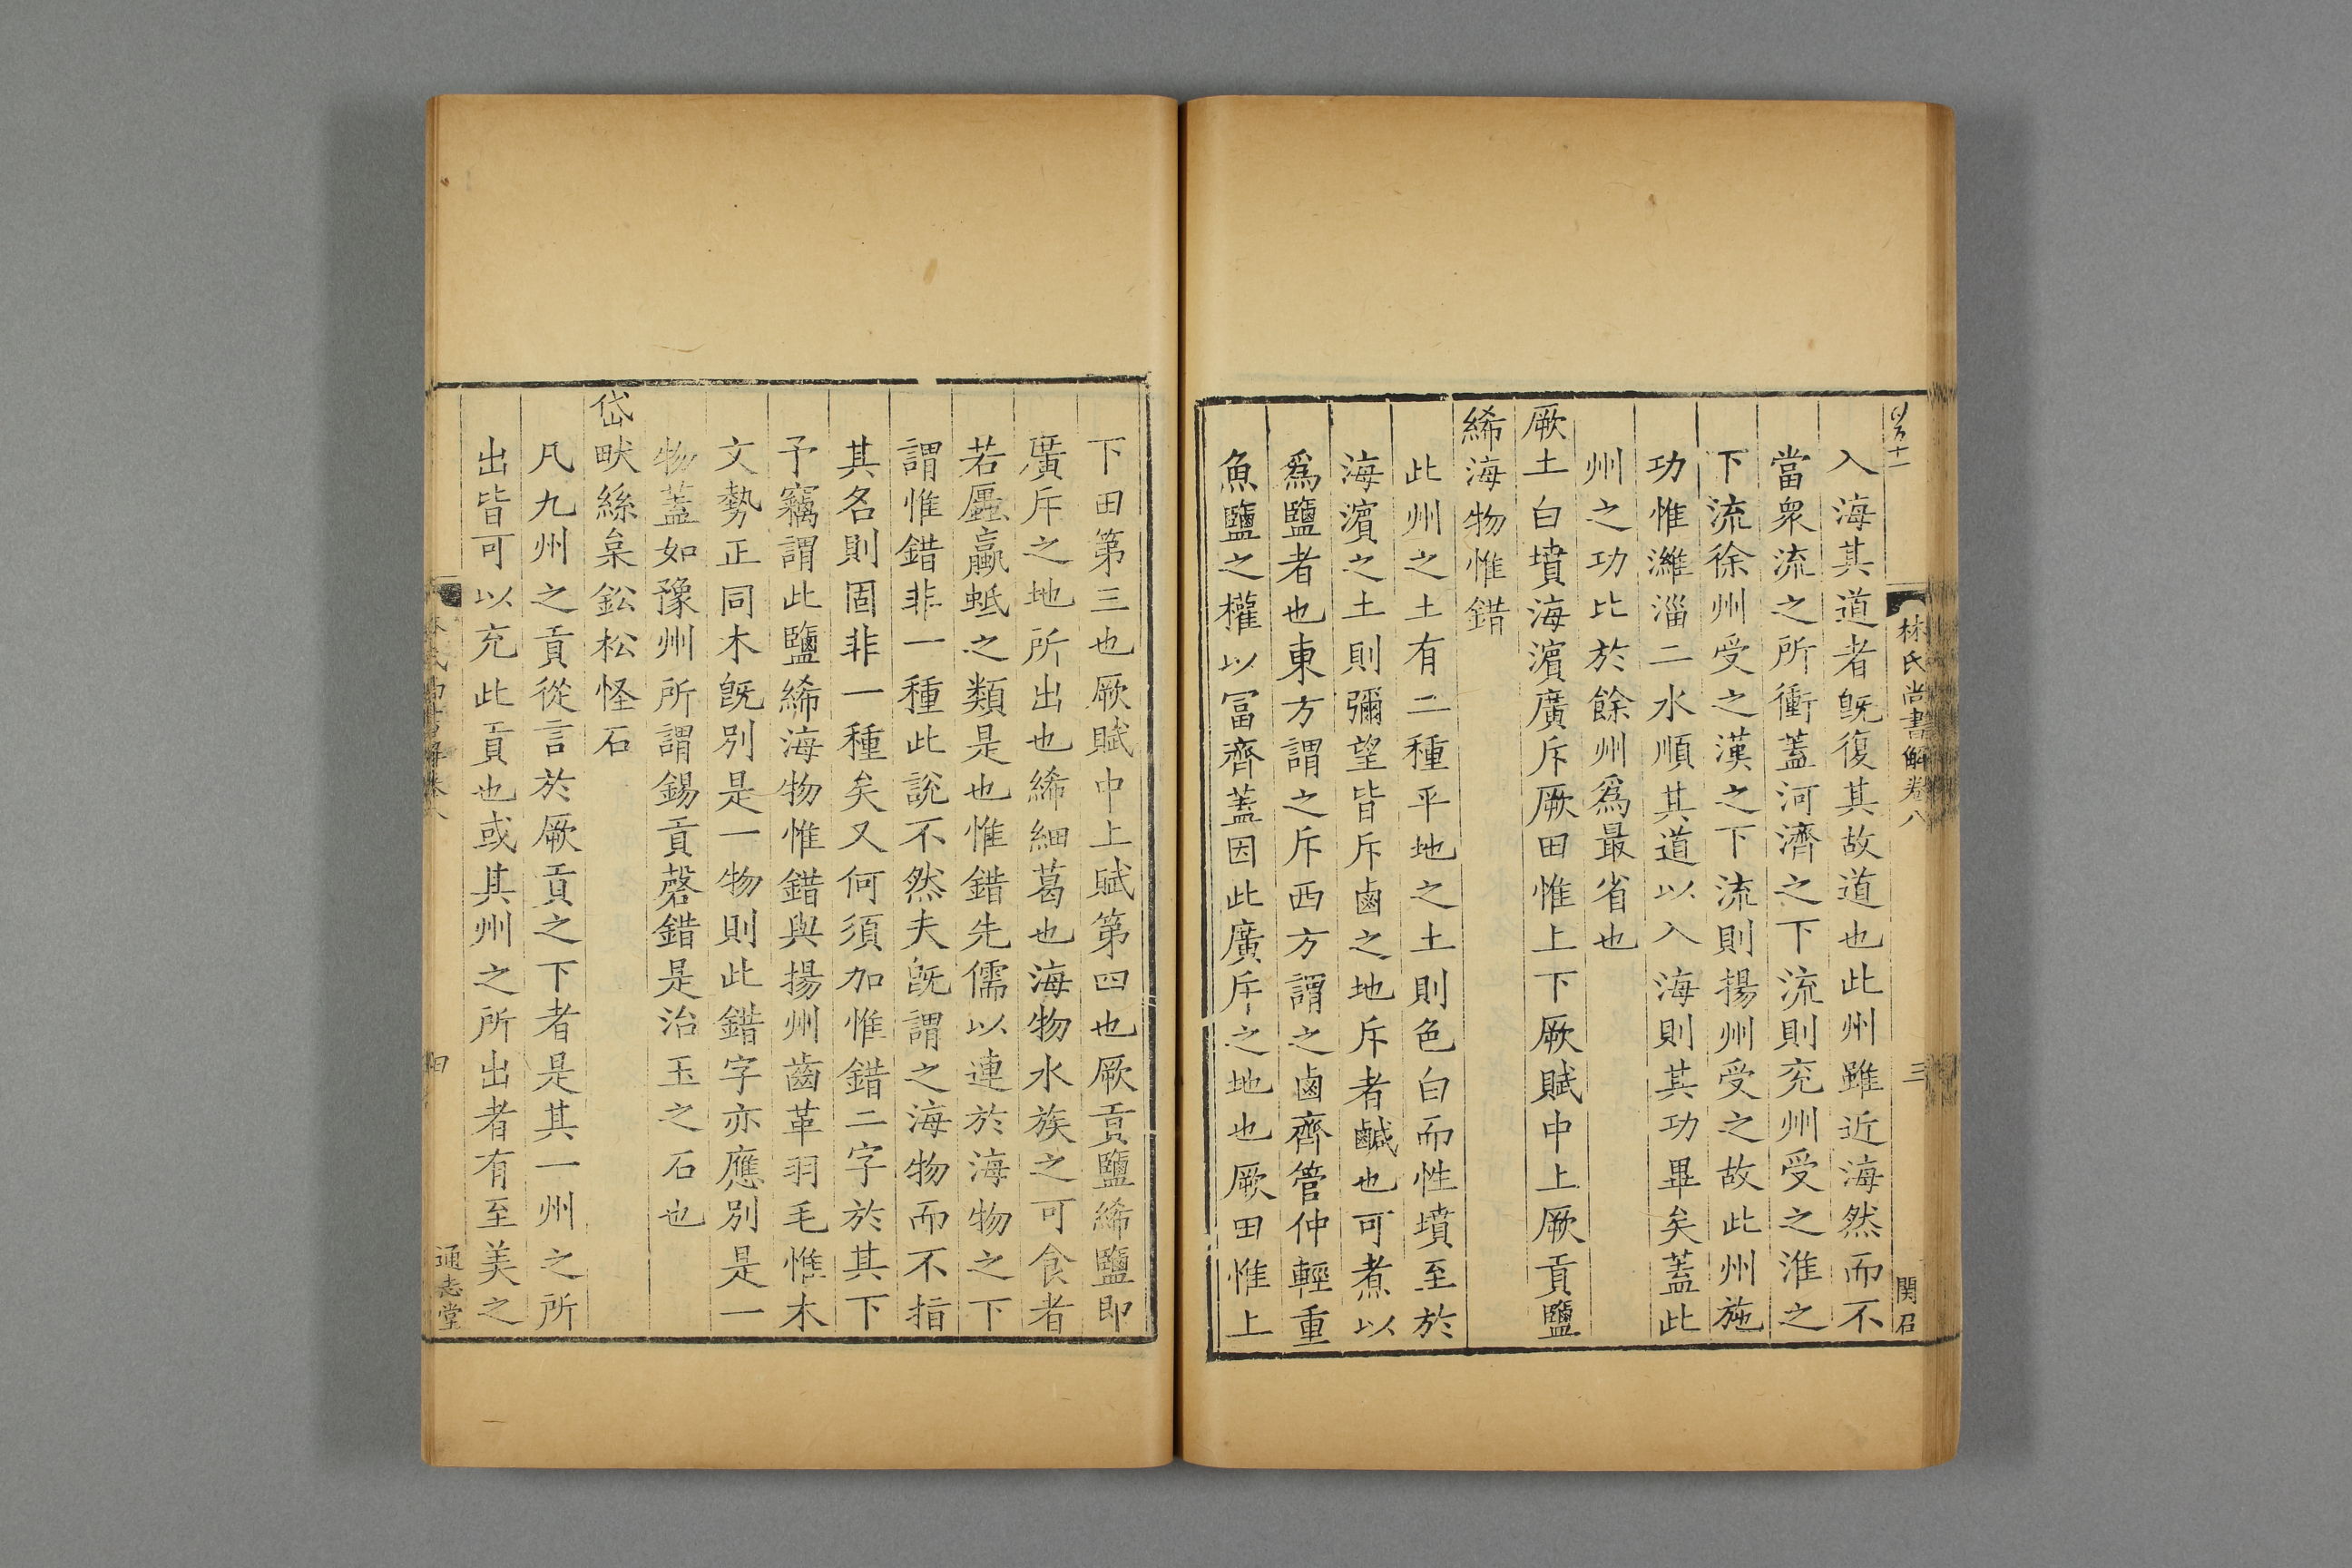 林氏尚書解卷八
三
関召
入海其道者旣復其故道也此州雖近海然而不
當衆流之所衝蓋河濟之下流則兖州受之淮之
下流徐州受之漢之下流則揚州受之故此州施
功惟濰淄二水順其道以入海則其功畢矣蓋此
州之功比於餘州爲最省也
厥土白墳海濵廣斥厥田惟上下厥賦中上厥貢鹽
絺海物惟錯
此州之土有二種平地之土則色白而性墳至於
海濵之土則彌望皆斥鹵之地斥者鹹也可煮以
爲鹽者也東方謂之斥西方謂之鹵齊管仲輕重
魚鹽之權以冨齊蓋因此廣斥之地也厥田惟上
下田第三也厥賦中上賦第四也厥貢鹽絺鹽即
廣斥之地所出也絺細葛也海物水族之可食者
若蜃蠃蚳之類是也惟錯先儒以連於海物之下
謂惟錯非一種此說不然夫旣謂之海物而不指
其名則固非一種矣又何須加惟錯二字於其下
予竊謂此鹽絺海物惟錯與揚州齒革羽毛惟木
文勢正同木旣別是一物則此錯字亦應別是一
物蓋如豫州所謂錫貢磬錯是治玉之石也
岱畎絲枲鈆松怪石
凡九州之貢從言於厥貢之下者是其一州之所
出皆可以充此貢也或其州之所出者有至美之
通志堂